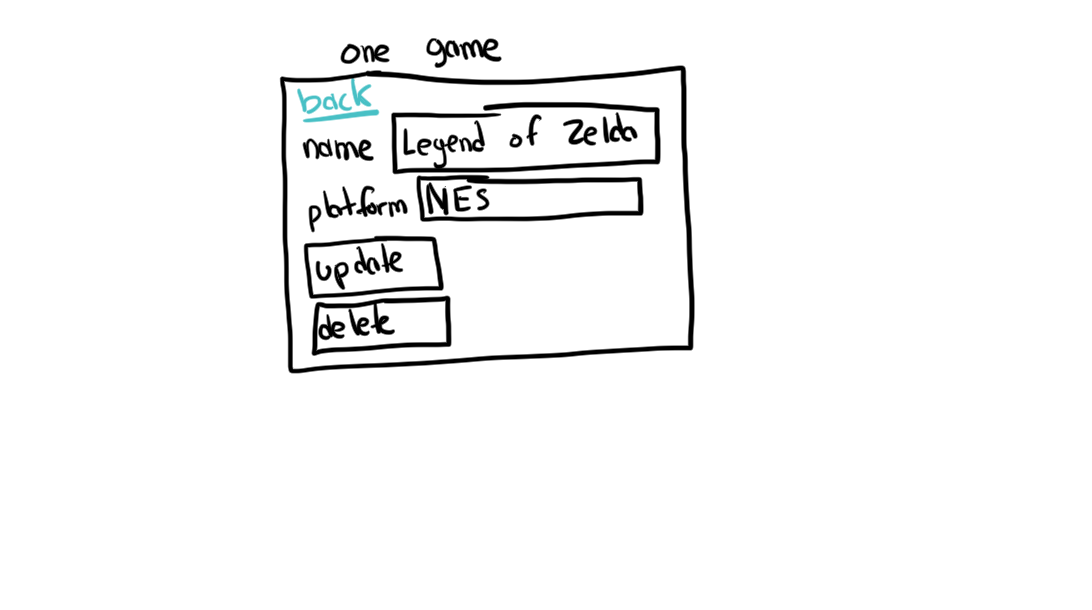 one game
back
name Legend of Zelda
platform NES
update
delete